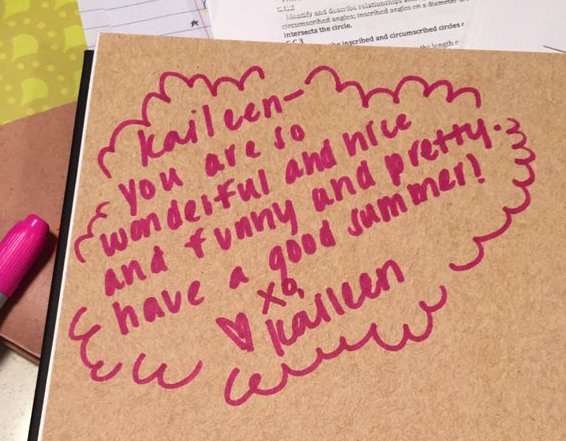 C.C.2
Identify and describe relationships
circumscribed angles; inscribed angles on a diameter
intersects the circle.
C.C.3
inscribed and circumscribed circles
length
Kaileen-
you are so
wonderful and nice
and funny and pretty.
have a good summer!
♡ xo,
Kaileen